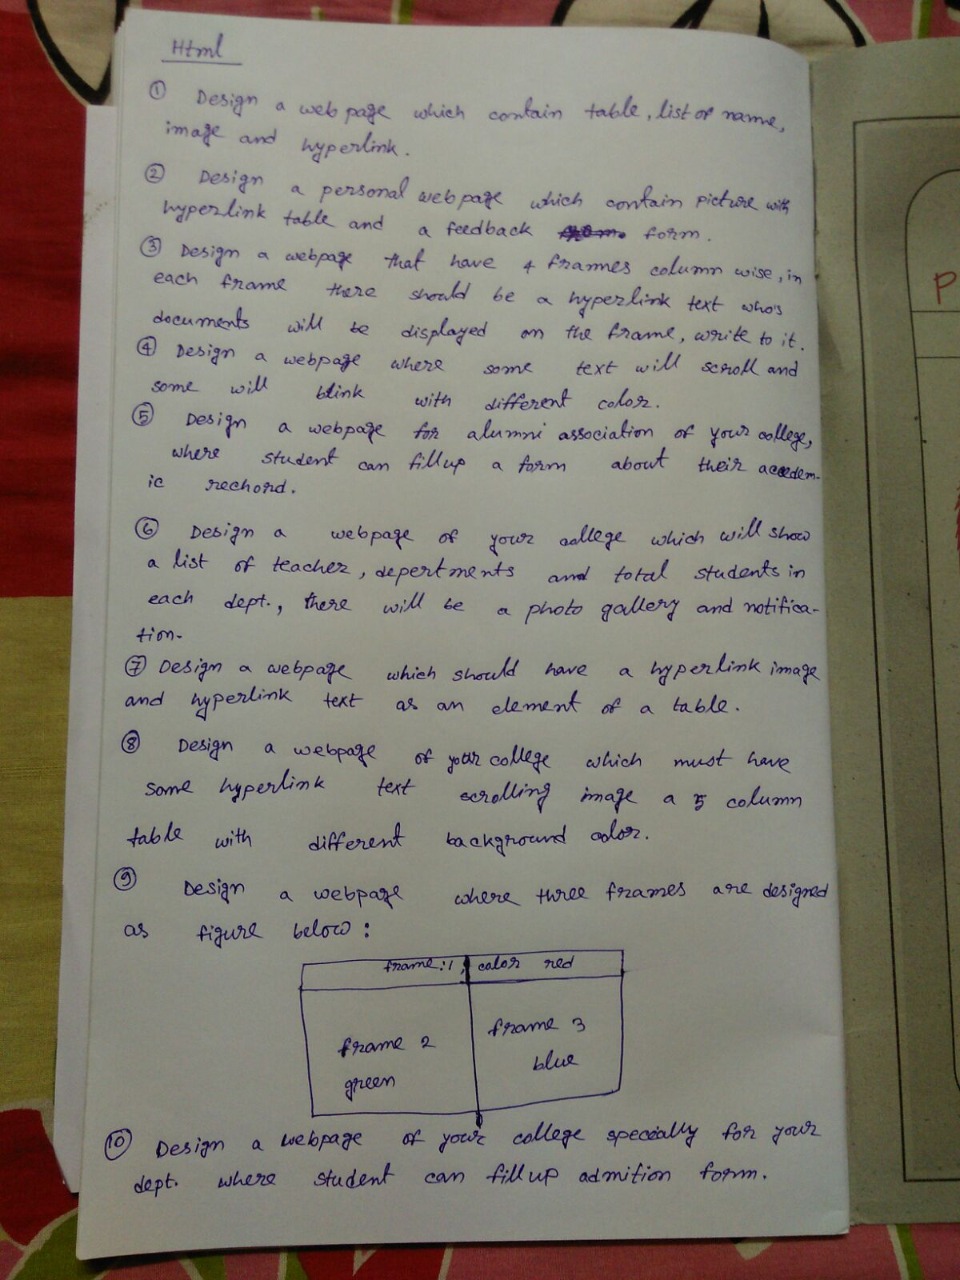 Html
① Design a web page which contain table, list of name,
image and hyperlink.
② Design a personal web page which contain picture with
hyperlink table and a feedback form.
③ Design a webpage that have 4 frames column wise, in
each frame there should be a hyperlink text who's
documents will be displayed on the frame, write to it.
④ Design a webpage where some text will scroll and
some will blink with different color.
⑤ Design a webpage for alumni association of your college,
where student can fillup a form about their
ic rechord.
⑥ Design a webpage of your college which will show
a list of teacher, depertments and total students in
each dept., there will be a photo gallery and notifica-
tion.
⑦ Design a webpage which should have a hyperlink image
and hyperlink text as an element of a table.
⑧ Design a webpage of your college which must have
some hyperlink text scrolling image a 5 column
table with different background color.
⑨ Design a webpage where three frames are designed
as figure below:
frame:1, color red
frame 2
green
frame 3
blue
⑩ Design a webpage of your college specially for your
dept. where student can fill up admition form.
P